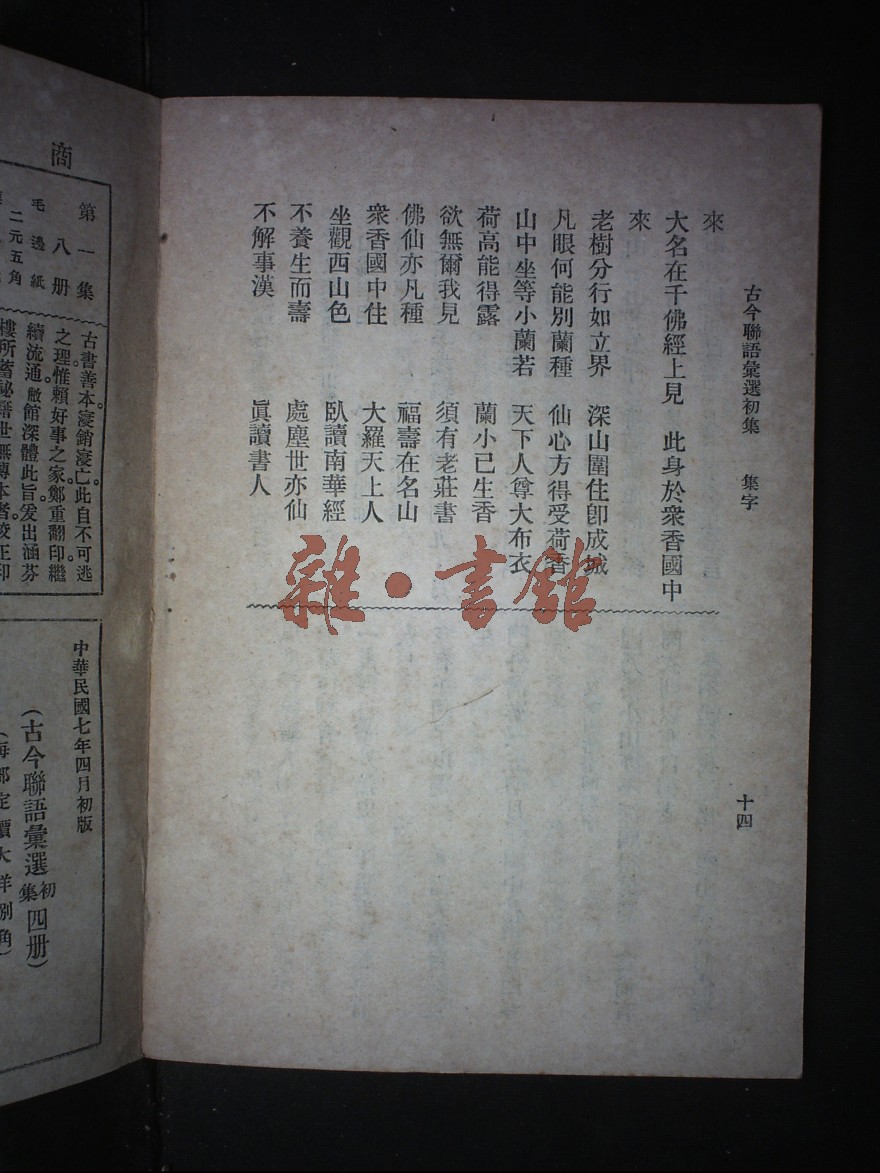 古今聯語彙選初集　集字
十四
來
大名在千佛經上見　此身於衆香國中
來
老樹分行如立界　深山圍住卽成城
凡眼何能別蘭種　仙心方得受荷香
山中坐等小蘭若　天下人尊大布衣
荷高能得露　蘭小已生香
欲無爾我見　須有老莊書
佛仙亦凡種　福壽在名山
衆香國中住　大羅天上人
坐觀西山色　臥讀南華經
不養生而壽　處塵世亦仙
不解事漢　眞讀書人
雜·書館
商
第一集
八册
毛邊紙
二元五角
古書善本寖銷寖亡。此自不可逃
之理。惟賴好事之家鄭重翻印繼
續流通。敝館深體此旨。爰出涵芬
樓所蓄祕籍世無傳本者校正印
中華民國七年四月初版
(古今聯語彙選初集四册)
(每部定價大洋捌角)